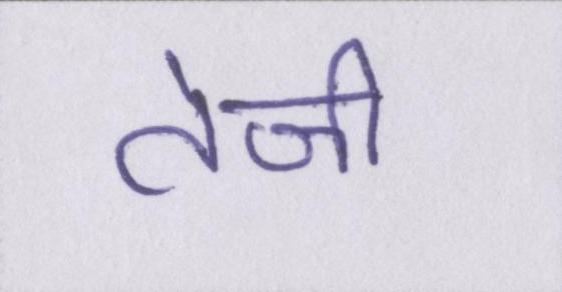 तेजी